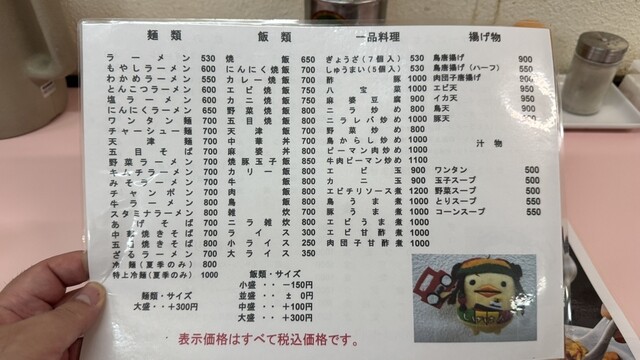 麺類
ラーメン 530
もやしラーメン 600
わかめラーメン 550
とんこつラーメン 600
塩ラーメン 600
にんにくラーメン 650
ワンタン麺 700
チャーシュー麺 700
天津麺 700
五目そば 700
野菜ラーメン 700
キムチラーメン 700
みそラーメン 700
チャンポン 700
牛ラーメン 800
スタミナラーメン 800
あげそば 700
中華焼きそば 700
五目焼きそば 700
ざるラーメン 700
冷麺(夏季のみ) 800
特上冷麺(夏季のみ) 1000
麺類・サイズ
大盛・・+300円
飯類
焼飯 650
にんにく焼飯 700
カレー焼飯 700
エビ焼飯 750
カニ焼飯 750
野菜焼飯 700
五目焼飯 700
天津飯 700
中華丼 700
麻婆丼 800
焼豚玉子飯 850
カリー飯 800
牛飯 800
肉飯 800
鳥飯 800
雑炊 700
ニラ雑炊 800
ライス 300
小ライス 250
大ライス 350
飯類・サイズ
小盛・・-150円
並盛・・± 0円
中盛・・+100円
大盛・・+300円
一品料理
ぎょうざ(7個入) 530
しゅうまい(5個入) 530
酢豚 1000
八宝菜 1000
麻婆豆腐 900
ニラ炒め 900
ニラレバ炒め 1000
野菜炒め 800
鳥からし炒め 1000
ピーマン肉炒め 1000
牛肉ピーマン炒め 1100
エビ玉 900
カニ玉 900
エビチリソース煮 1200
鳥うま煮 1000
豚うま煮 1000
エビうま煮 1000
エビ甘酢煮 1000
肉団子甘酢煮 1000
揚げ物
鳥唐揚げ 900
鳥唐揚げ(ハーフ) 550
肉団子唐揚げ 900
エビ天 950
イカ天 950
鳥天 900
豚天 900
汁物
ワンタン 500
玉子スープ 500
野菜スープ 500
とりスープ 550
コーンスープ 550
表示価格はすべて税込価格です。